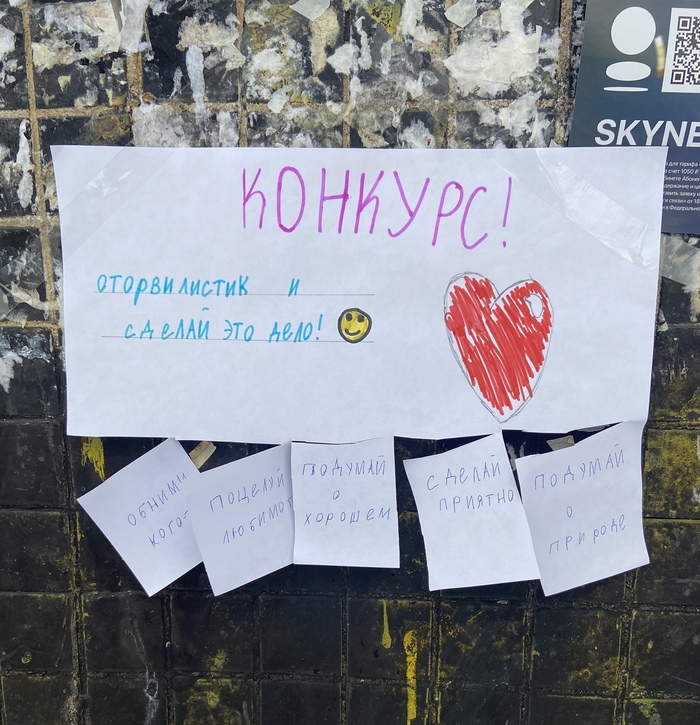 КОНКУРС!
ОТОРВИ ЛИСТИК И
СДЕЛАЙ ЭТО ДЕЛО!
ОБНИМИ
КОГО-
ПОЦЕЛУЙ
ЛЮБИМОГ
ПОДУМАЙ
О
ХОРОШЕМ
СДЕЛАЙ
ПРИЯТНО
ПОДУМАЙ
О
ПРИРОДЕ
SKYNE